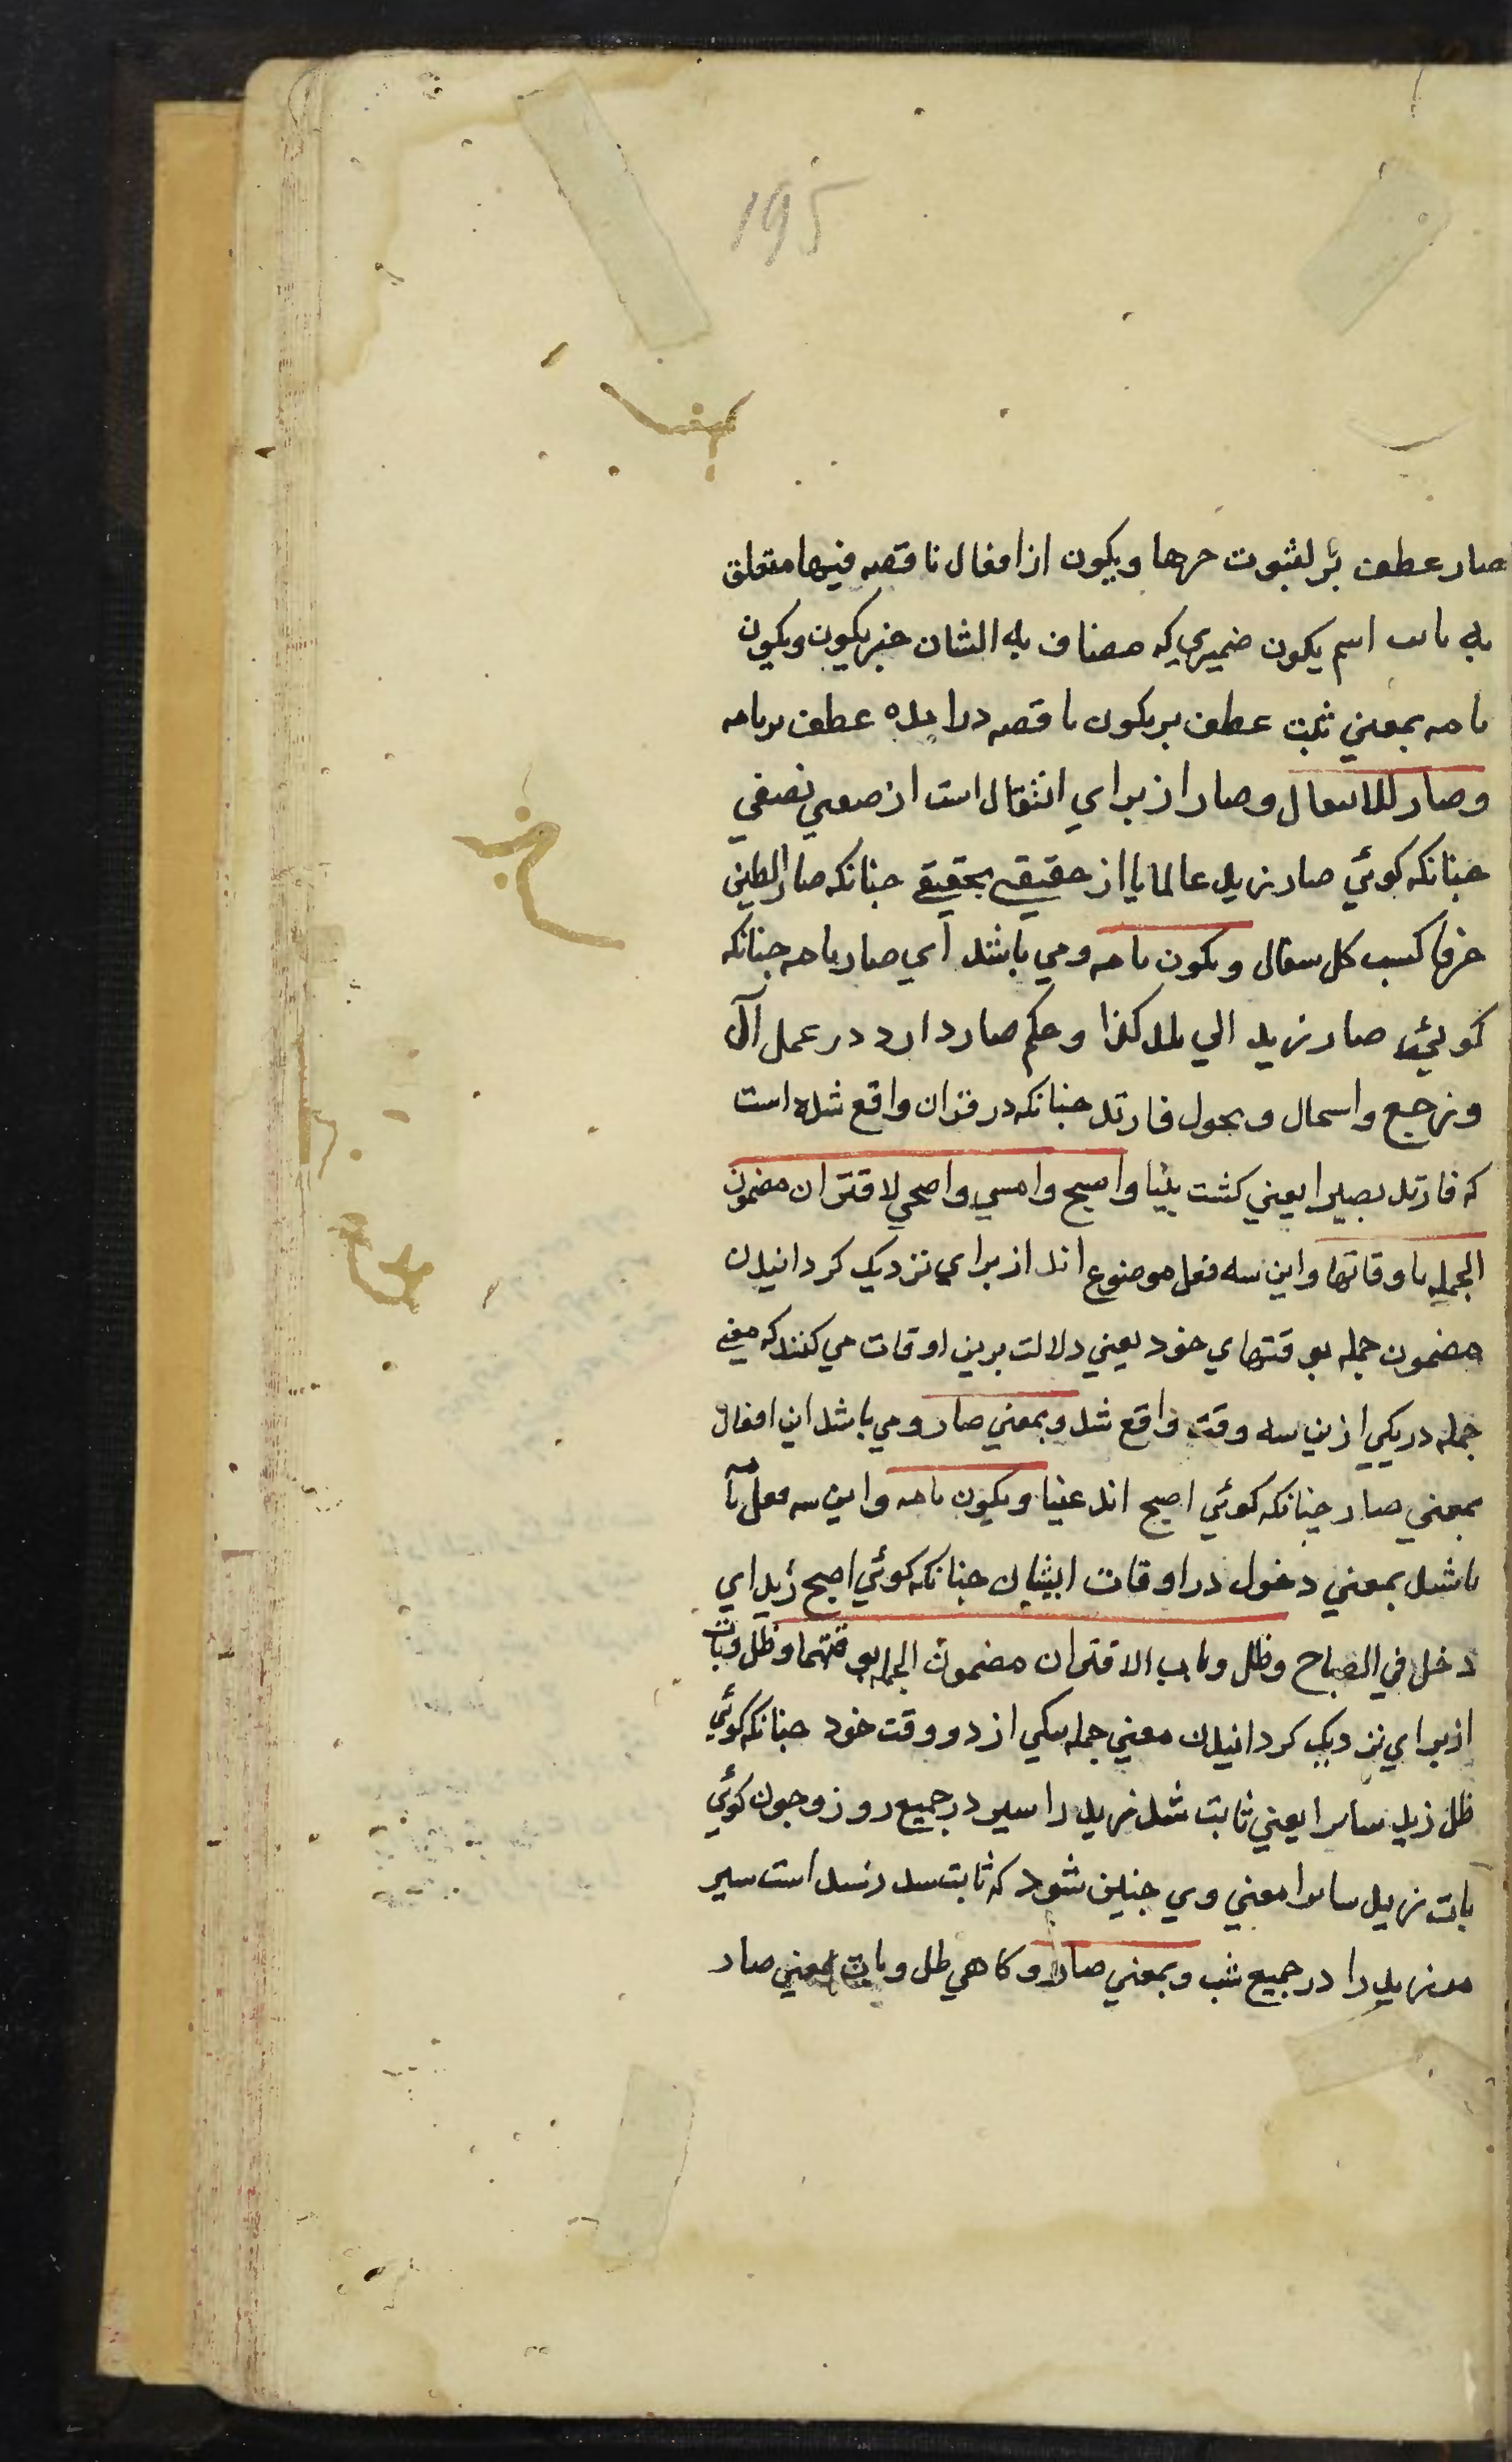 195
صار عطف بر لثبوت خبرها ويكون از افعال ناقصه فيها متعلق
به ثابت اسم يكون ضميري كه مضاف به الشان خبر يكون ويكون
تامه بمعني ثبت عطف بر يكون ناقصه درايده عطف بر تامه
وصار للانتقال وصار از براي انتقال است از صفتي بصفتي
چنانكه كوئي صار زيد عالما يا از حقيقتي بحقيقتي چنانكه صار الطين
خزفا كشت كل سفال ويكون تامه ومي باشد اي صار تامه چنانكه
كوئي صار زيد الي بلد كذا وحكم صار دارد در عمل آل
ورجع واستحال وتحول فارتد چنانكه در قران واقع شده است
كه فارتد بصيرا يعني كشت بينا واصبح وامسي واضحي لاقتران مضمون
الجمله باوقاتها واين سه فعل موضوع اند از براي نزديك كردانيدن
مضمون جمله بوقتهاي خود يعني دلالت برين اوقات مي كنند كه معني
جمله در يكي ازين سه وقت واقع شد وبمعني صار ومي باشد اين افعال
بمعني صار چنانكه كوئي اصبح اند غنيا ويكون تامه واين سه فعل تا
باشد بمعني دخول در اوقات ايشان چنانكه كوئي اصبح زيد اي
دخل في الصباح وظل وبات لاقتران مضمون الجمله بوقتهما وظل وبات
از براي نزديك كردانيدن معني جمله بيكي از دو وقت خود چنانكه كوئي
ظل زيد سايرا يعني ثابت شد زيد را سير در جميع روز وچون كوئي
بات زيد سايرا معني وي چنين شود كه ثابت شد است سير
مر زيد را در جميع شب وبمعني صار وكاهي ظل وبات بمعني صار